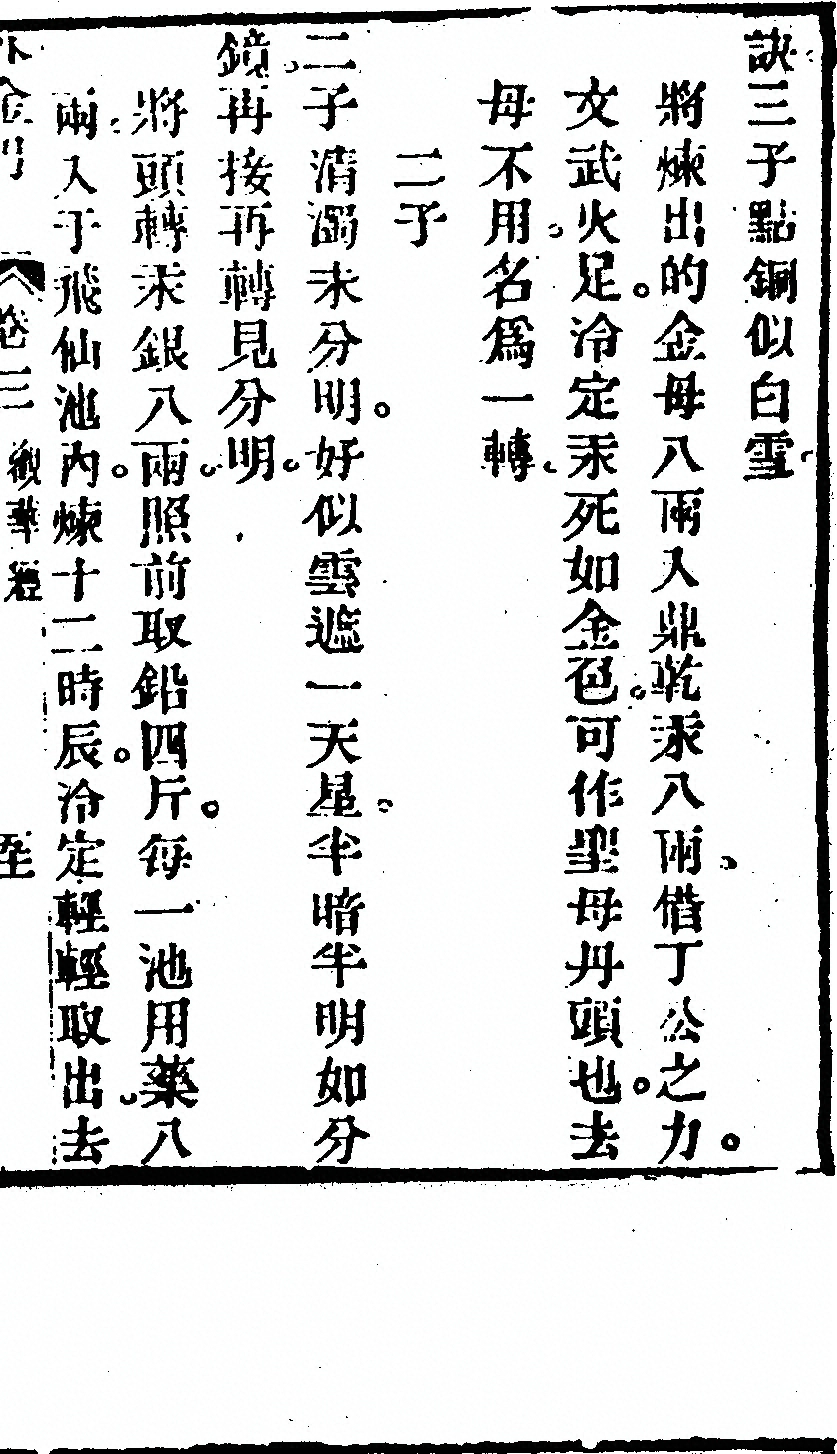 訣三子點銅似白雪
將煉出的金母八兩入鼎乾汞八兩借丁公之力。
文武火足。冷定汞死如金色。可作聖母丹頭也。去
母不用。名爲一轉。
二子
二子清濁未分明。好似雲遮一天星。半暗半明如分
鏡。再接再轉見分明。
將頭轉汞銀八兩。照前取鉛四斤。每一池用藥八
兩。入于飛仙池內。煉十二時辰。冷定輕輕取出。去
外金丹 卷三 觀華經 至